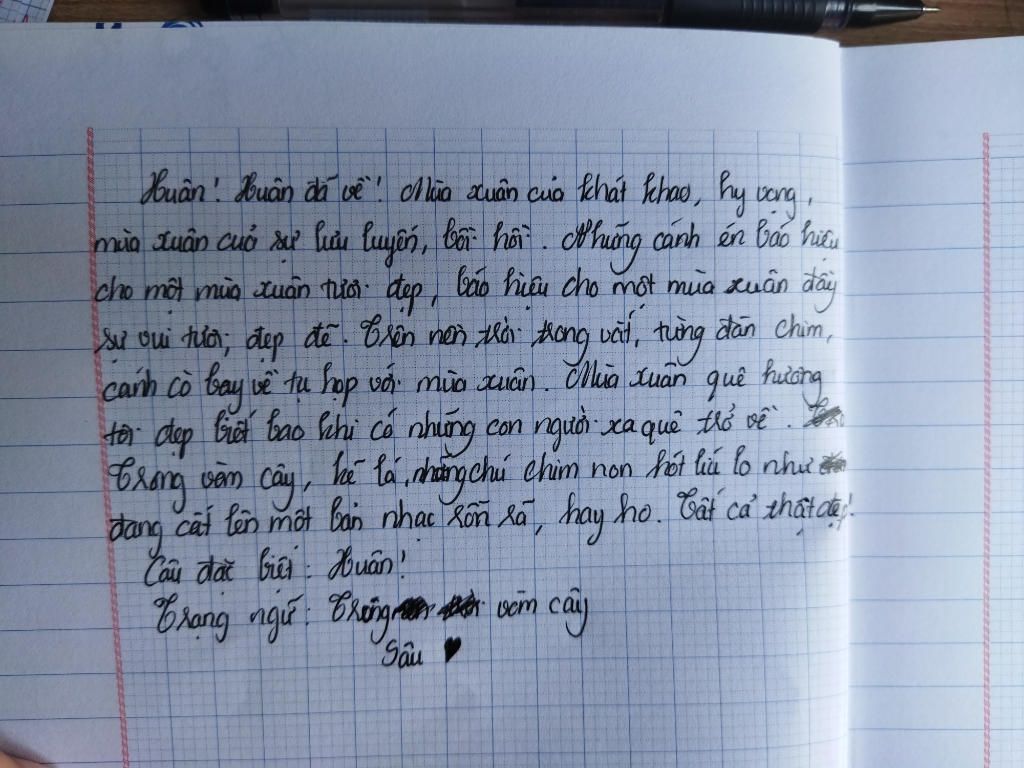 Xuân! Xuân đã về! Mùa xuân của khát khao, hy vọng,
mùa xuân của sự lưu luyến, bồi hồi. Những cánh én báo hiệu
cho một mùa xuân tươi đẹp, báo hiệu cho một mùa xuân đầy
sự vui tươi, đẹp đẽ. Trên nền trời trong vắt, từng đàn chim,
cánh cò bay về tụ họp với mùa xuân. Mùa xuân quê hương
tôi đẹp biết bao khi có những con người xa quê trở về.
Trong vòm cây, kẽ lá, những chú chim non hót líu lo như
đang cất lên một bản nhạc rôn rã, hay ho. Tất cả thật đẹp!
Câu đặc biệt: Xuân!
Trạng ngữ: Trong vòm cây
Sâu ♥